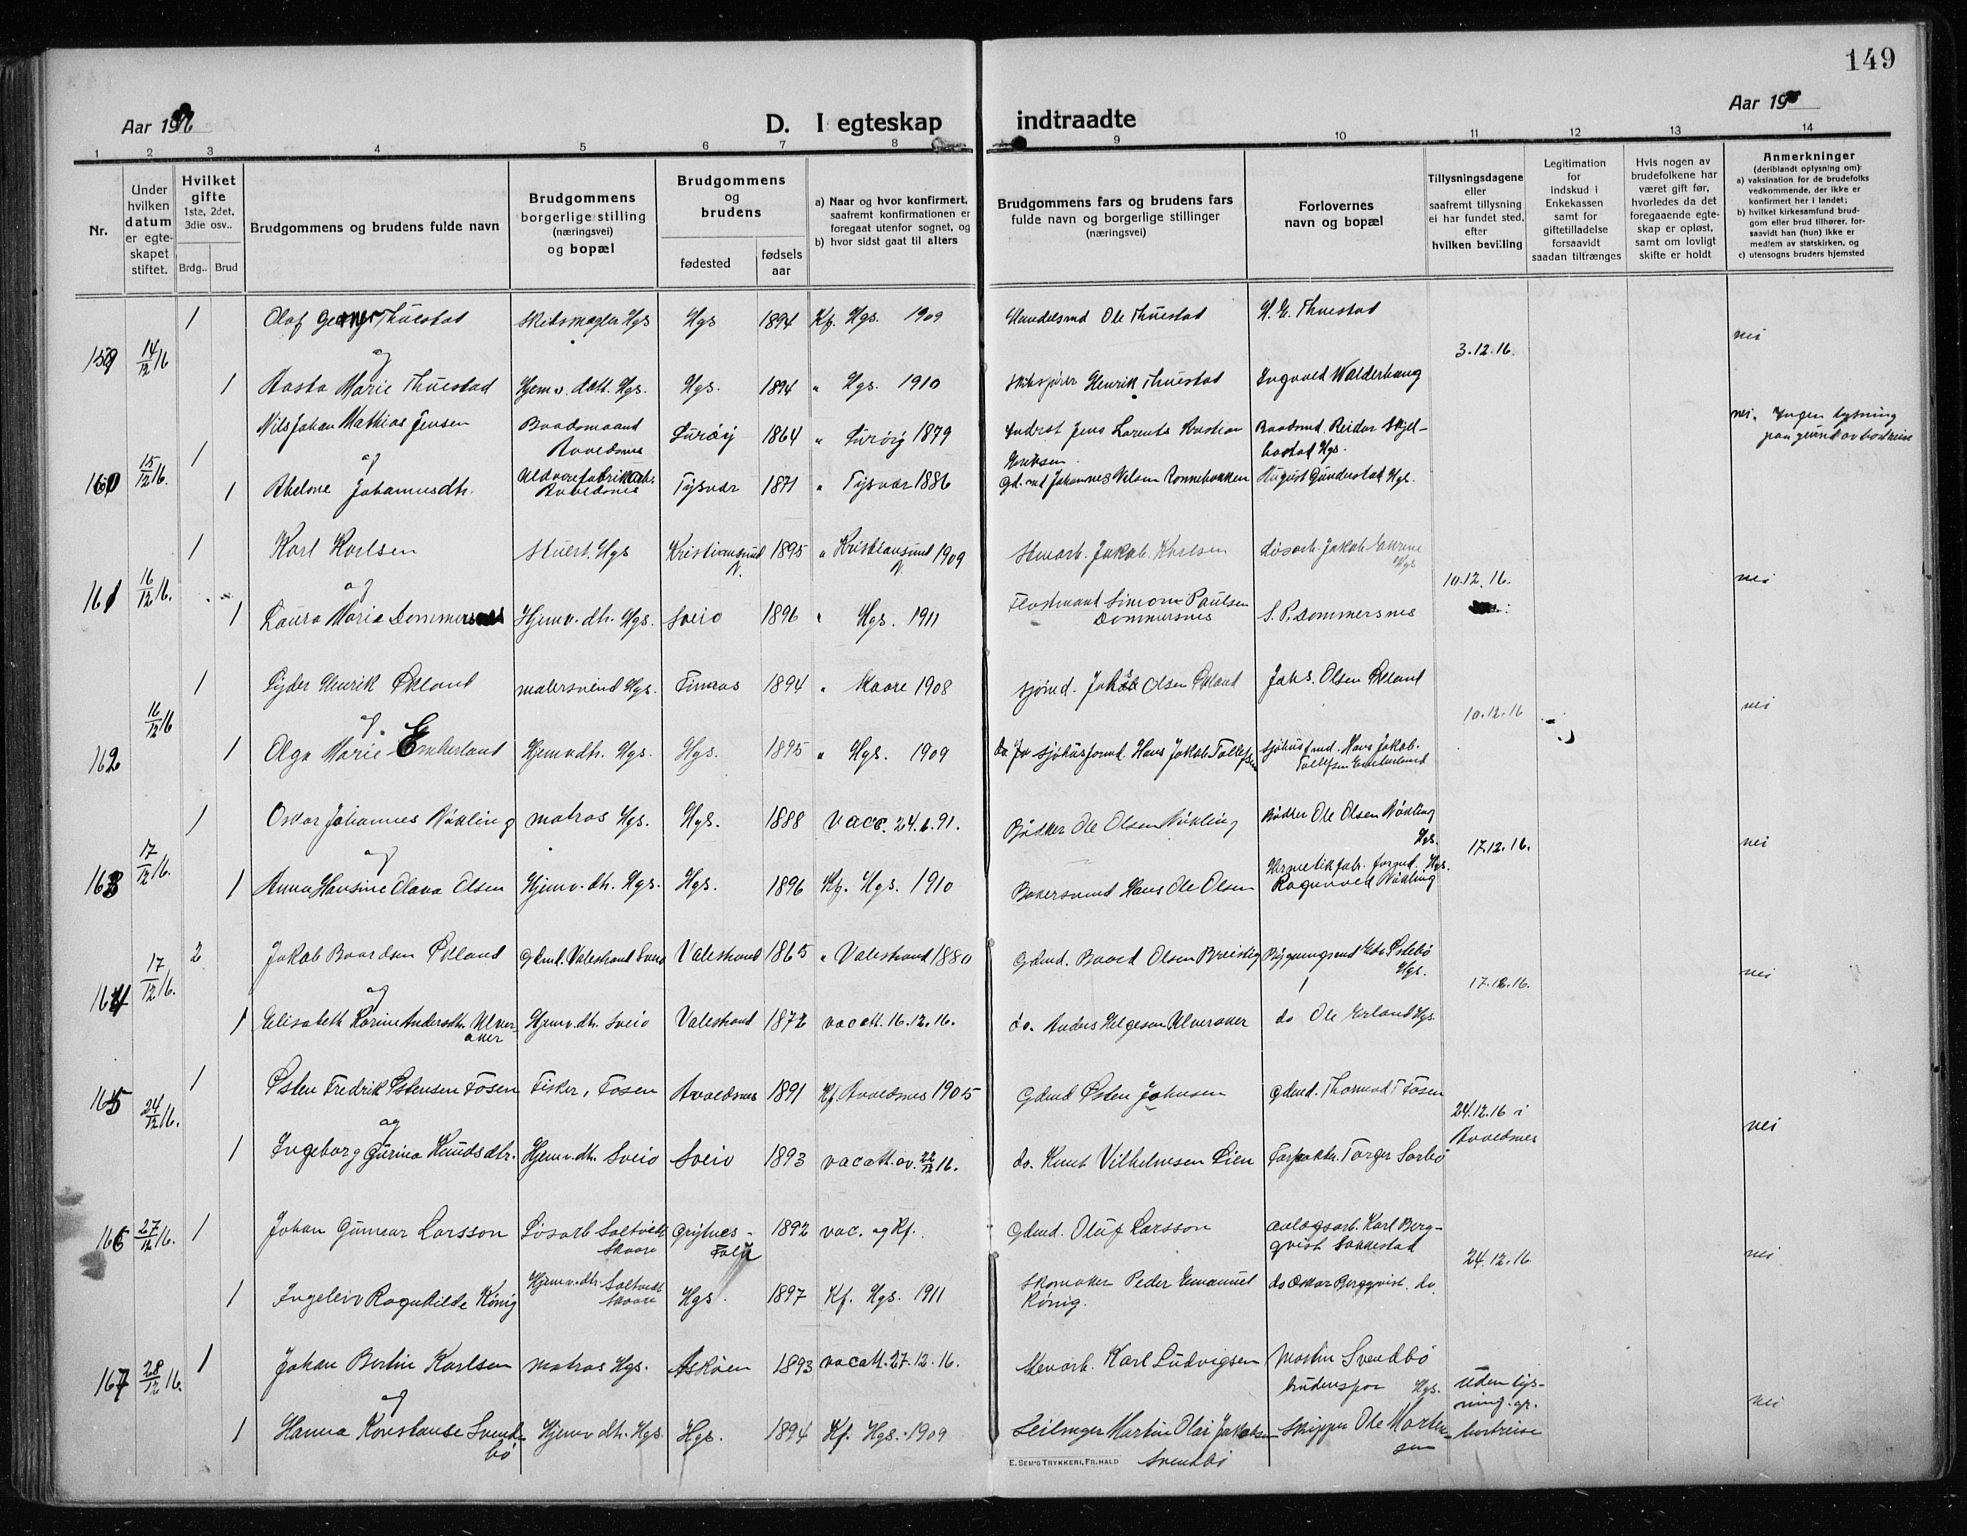 149
Aar 1916
D. I egteskap indtraadte
Aar 19
1 2 3 4 5 6 7 8 9 10 11 12 13 14
Nr.
Under hvilken datum er egteskapet stiftet.
Hvilket gifte
1ste, 2det, 3die osv..
Brdg.. Brud
Brudgommens og brudens fulde navn
Brudgommens borgerlige stilling (næringsvei) og bopæl
Brudgommens og brudens
fødested
fødsels aar
a) Naar og hvor konfirmert, saafremt konfirmationen er foregaat utenfor sognet, og
b) hvor sidst gaat til alters
Brudgommens fars og brudens fars fulde navn og borgerlige stillinger (næringsvei)
Forlovernes navn og bopæl
Tillysningsdagene eller saafremt tillysning ei har fundet sted, efter hvilken bevilling
Legitimation for indskud i Enkekassen samt for giftetilladelse forsaavidt saadan tiltrænges
Hvis nogen av brudefolkene har været gift før, hvorledes da det foregaaende egteskap er opløst, samt om lovligt skifte er holdt
Anmerkninger
(deriblandt oplysning om):
a) vaksination for de brudefolks vedkommende, der ikke er konfirmert her i landet;
b) hvilket kirkesamfund brudgom eller brud tilhører, forsaavidt han (hun) ikke er medlem av statskirken, og
c) utensogns bruders hjemsted
159 14/12 16 1 Olaf Georg Thuestad Skibsmægler Hgs Hgs 1894 Kf. Hgs. 1909 Handelsmd Ole Thuestad H. E. Thuestad 3.12.16. nei
og
1 Aasta Marie Thuestad Hjemv. datt. Hgs. Hgs. 1894 " Hgs. 1910 Skibsfører Henrik Thuestad Ingvald Walderhaug
160 15/12 16. 1 Nils Johan Mathias Jensen Baadsmand Avaldsnes Lurøy 1864 " Lurøy 1879 Inderst Jens Lorents Kristian Eriksen Baadsmd. Reidar Skjelbostad Hgs. nei. Ingen lysning paa grund av bortreise
og
1 Abelone Johannesdtr. Avaldsnes Tysvær 1871 " Tysvær 1886 Gd.md Johannes Nilsen Rønnebakken August Gunderstad Hgs.
161 16/12 16. 1 Karl Karlsen Stuert. Hgs Kristiansund N. 1895 " Kristiansund N. 1909 Jakob Karlsen Løsarb. Jakob Hgs 10.12.16. nei
og
1 Laura Marie Dommersnes Hjemv. dtr. Hgs. Sveio 1896 " Hgs. 1911 Simon Paulsen Dommersnes S. P. Dommersnes
162 16/12 16 1 Lyder Henrik Økland malersvend Hgs. Finaas 1894 " Skaare 1908 Sjømd. Olsen Økland Johs. Olsen Økland 10.12.16 nei
og
1 Olga Marie Emberland Hjemv dtr. Hgs. Hgs. 1895 " Hgs. 1909 Sjøhusformd. Hans Jakob Tollefsen Sjøhusfmd. Hans Jakob Tollefsen Emberland
163 17/12 16. 1 Oskar Johannes Nøkling matros Hgs. Hgs. 1888 Vacc. 24.6.91. Bødker Ole Olsen Nøkling Bødker Ole Olsen Nøkling Hgs. 17.12.16. nei
og
1 Anna Hansine Olava Olsen Hjemv. dtr. Hgs. Hgs. 1896 Kf. Hgs. 1910 Bakersvend Hans Ole Olsen Hermetikfab. formd. Hgs. Ragnvald Nøkling
164 17/12 16. 2 Jakob Baardsen Økland Gdmd. Valestrand Sveio Valestrand 1865 " Valestrand 1880 Gdmd. Baard Olsen Breistig Bygningsmd Edv. Østebø Hgs. 17.12.16. nei
og
1 Elisabeth Karine Andersdtr. Ulveraker Hjemv. dtr. Sveio Valestrand 1872 vacatt. 16.12.16. do. Anders Helgesen Ulveraker do Ole Erland Hgs.
165 24/12 16. 1 Østen Fredrik Østensen Føsen Fisker, Føsen Avaldsnes 1891 Kf Avaldsnes 1905 Gdmd Østen Johnsen Gdmd. Thormod T Føsen 24.12.16 i Avaldsnes nei
og
1 Ingeborg Gurina Knudsdtr. Hjemv. dtr. Sveio Sveio 1893 vacatt. av. 22/12 16. do. Knut Vilhelmsen Lien Torger Sørbø
166 27/12 16. 1 Johan Gunnar Larsson Løsarb Saltveit Skaare 1892 vac. og Kf. Gdmd. Oluf Larsson anlægsarb. Karl Bergqvist Sakkestad 24.12.16 nei
1 Ingeleiv Ragnhilde König Hjemv. dtr. Saltveit Skaare Hgs. 1897 Kf. Hgs. 1911 Skomaker Peder Emanuel König. do Oskar Bergqvist. do.
167 28/12 16. 1 Johan Bertin Karlsen matros Hgs. Askøen 1893 vacatt. 27.12.16. Karl Ludvigsen Martin Svendbø brudens far Hgs. uden lysning. gr. bortreise nei
og
1 Hanna Konstanse Svendbø Hjemv dtr. Hgs Hgs. 1894 Kf. Hgs. 1909 Seilmager Martin Olai Jakobsen Svendbø Skipper Ole Mortensen
E. SEM'S TRYKKERI, FR.HALD